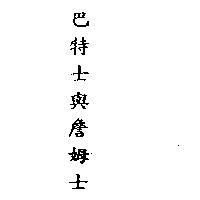 巴特士與詹姆士